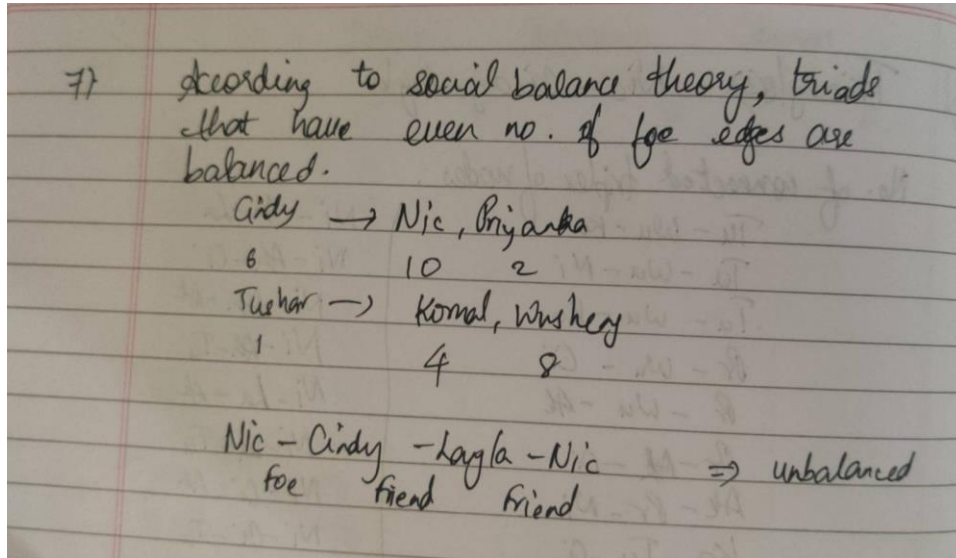 7) According to social balance theory, triads
that have even no. of foe edges are
balanced.
Cindy → Nic, Priyanka
6 10 2
Tushar → Komal, Wushery
1 4 8
Nic - Cindy - Layla - Nic ⇒ unbalanced
foe friend friend